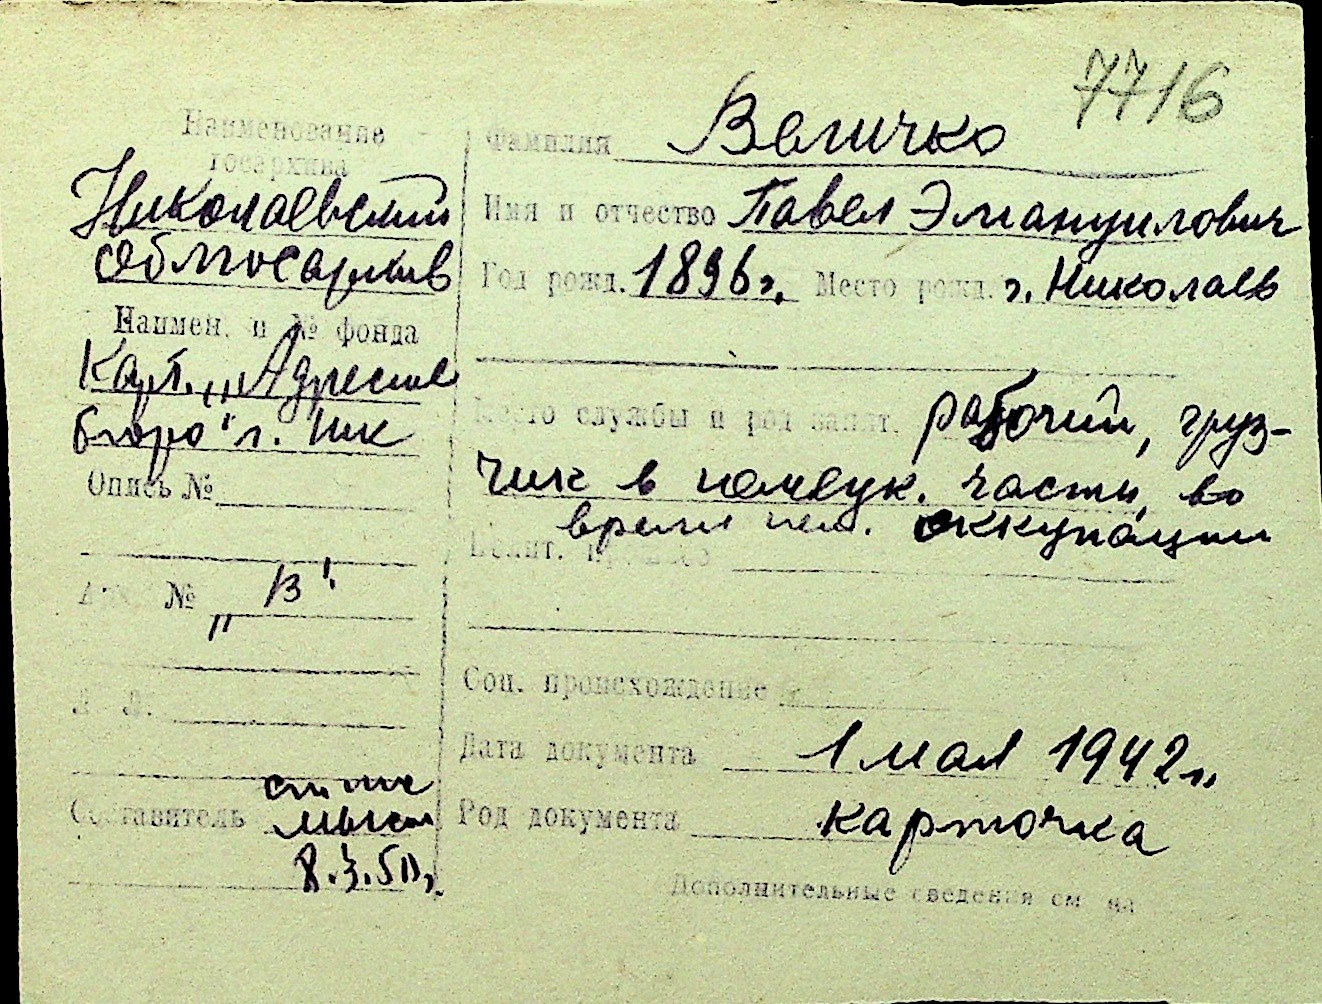 7716
Наименование
госархива
Николаевский
облгосархив
Наимен. и № фонда
Карт. „Адресное
бюро" г. Ник
Опись №
№ „В"
Составитель
8.3.50г.
Фамилия Величко
Имя и отчество Павел Эмануилович
Год рожд. 1896г. Место рожд. г. Николаев
Место службы и род занят. рабочий, груз-
чик в немецк. части, во
время нем. оккупации
Соц. происхождение
Дата документа 1 мая 1942г.
Род документа карточка
Дополнительные сведения см на